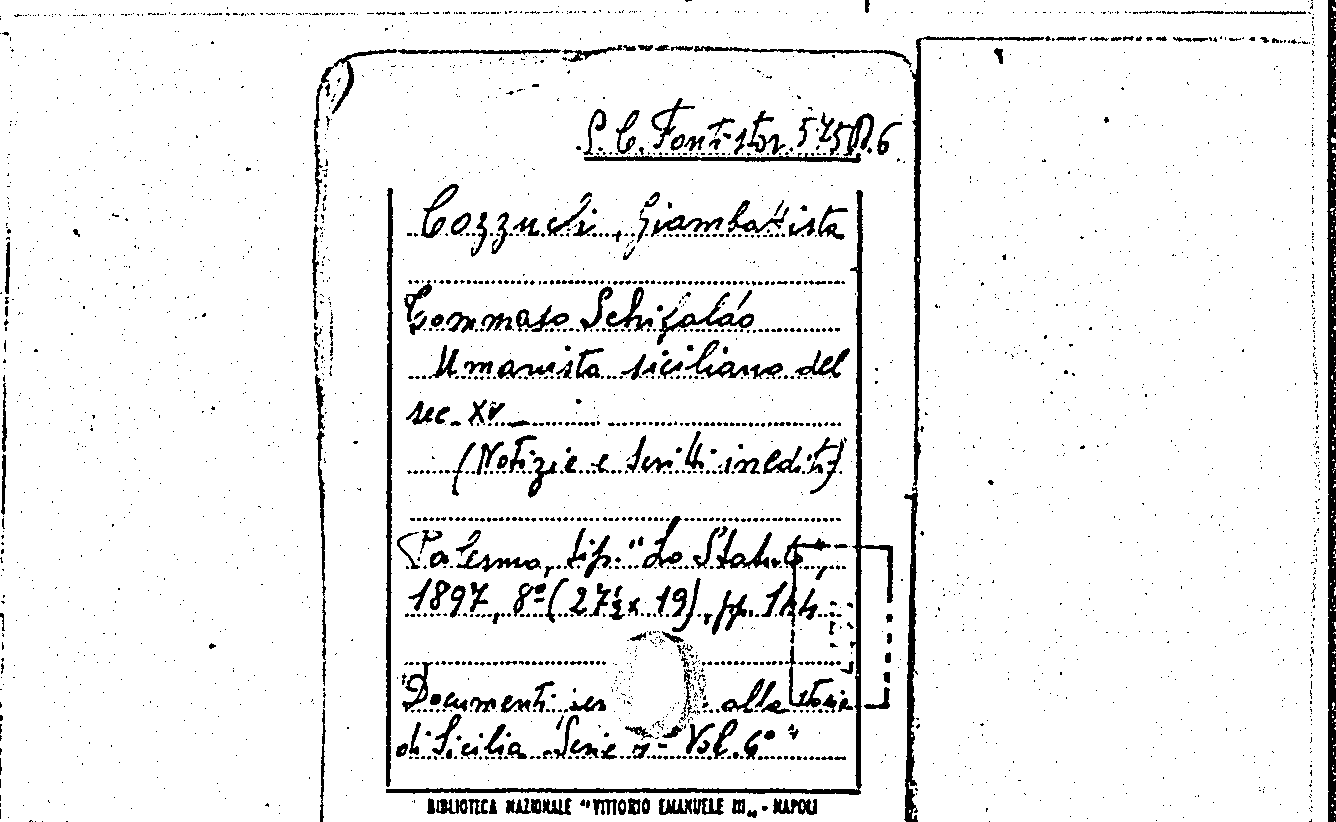 S. C. Font. stor. 575 D. 6
Cozzucli, Giambattista
Tommaso Schifaldo
Umanista siciliano del
sec. XV
(Notizie e scritti inediti)
Palermo, tip. "Lo Statuto",
1897, 8º (27½ x 19), pp. 144
"Documenti alla storia
di Sicilia Serie Vol. 6º"
BIBLIOTECA NAZIONALE "VITTORIO EMANUELE III„ - NAPOLI